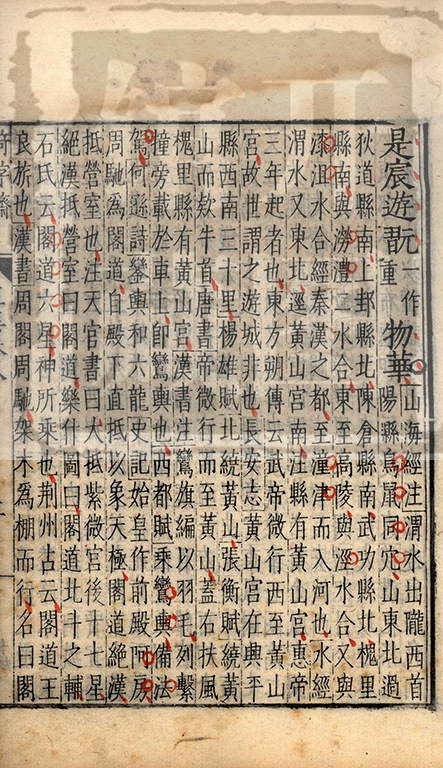 是宸遊翫一作重物華山海經注渭水出隴西首
陽縣鳥鼠同穴山東北過
狄道縣南上邽縣北陳倉縣南武功縣北槐里
縣南與澇澧二水合東至高陵與涇水合又與
漆沮水合經秦漢之都至潼津而入河也水經
渭水又東北逕黃山宮南注縣有黃山宮惠帝
三年起者也東方朔傳云武帝微行西至黃山
宮故世謂之遊城非也長安志黃山宮在興平
縣西南三十里楊雄賦北繞黃山張衡賦繞黃
山而欵牛首唐書帝微行而至黃山蓋右扶風
槐里縣有黃山宮漢書注鸞旗編以羽毛列繫
橦旁載於車上即鸞輿也西都賦乘鸞輿備法
駕何遜詩鑾輿和六龍史記始皇作前殿阿房
周馳為閣道自殿下直抵以象天極閣道絕漢
抵營室也注天官書曰天抵紫微宮後十七星
絕漢抵營室曰閣道樂什圖曰閣道北斗之輔
石氏云閣道六星神所乘也荊州古云閣道王
良旅也漢書周閣周馳架木為棚而行名曰閣